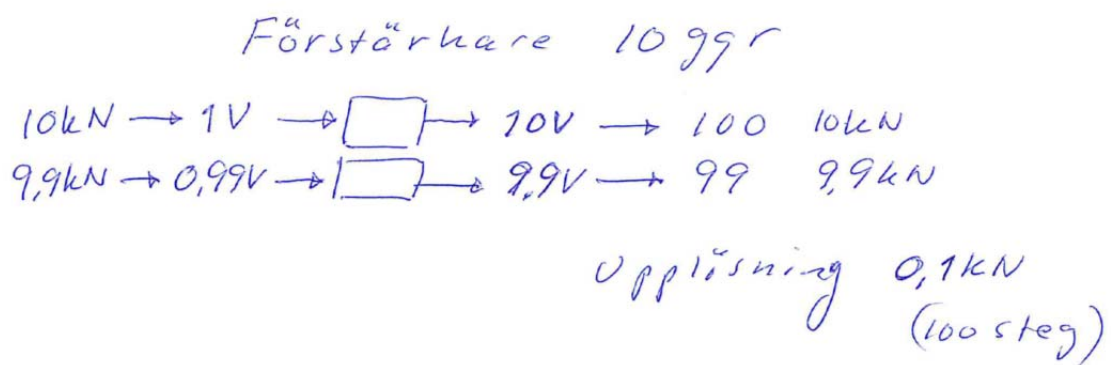 Förstärkare 10 ggr
10kN → 1V → → 10V → 100 10kN
9,9kN → 0,99V → → 9,9V → 99 9,9kN
Upplösning 0,1kN
(100 steg)